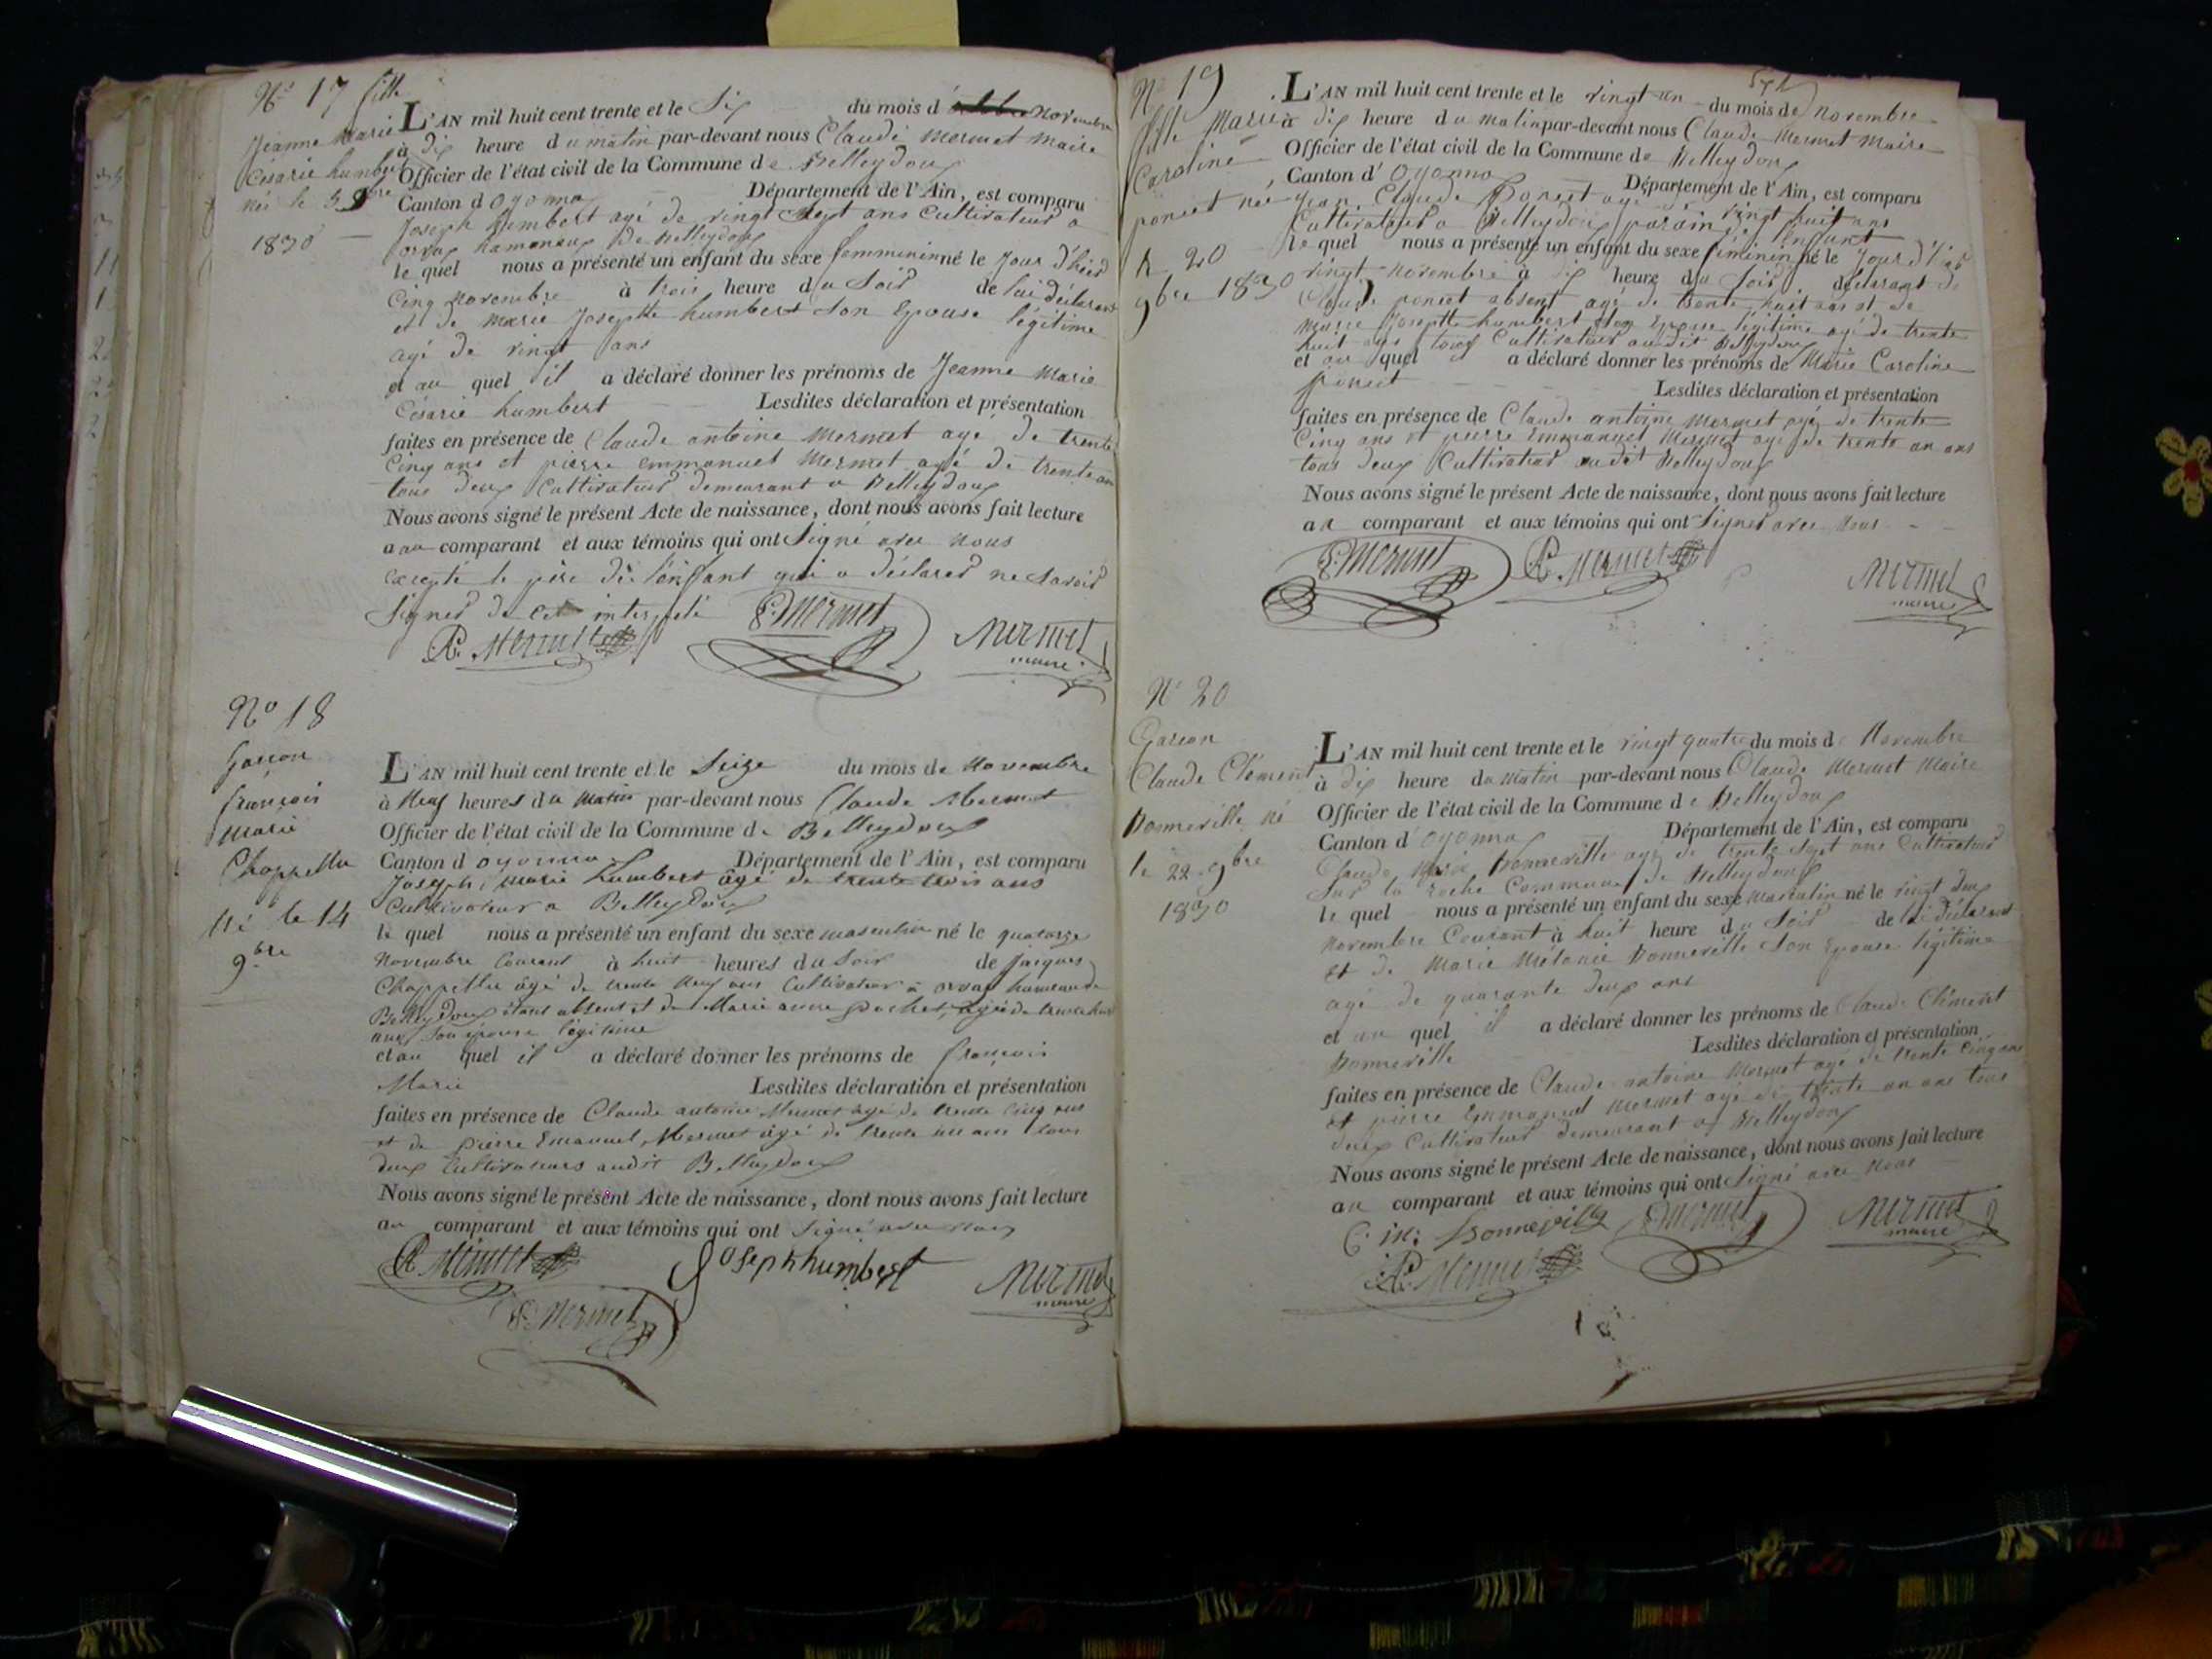 N.o 17 fille
Jeanne Marie
Césarie humbert
née le 5 9bre
1830
L'AN mil huit cent trente et le Six du mois d' Novembre
à dix heure du matin par-devant nous Claude Mermet Maire
Officier de l'état civil de la Commune de Belleydoux
Canton d Oyonnax Département de l'Ain, est comparu
Joseph humbert agé de vingt Sept ans Cultivateur a
orvaz hameaux de Belleydoux
le quel nous a présenté un enfant du sexe femminin né le jour d'hier
Cinq novembre à trois heure du Soir de lui déclarant
et de marie Josephte humbert Son Epouse légitime
agé de vingt ans
et au quel il a déclaré donner les prénoms de Jeanne Marie
Césarie humbert Lesdites déclaration et présentation
faites en présence de Claude antoine Mermet agé de trente
Cinq ans et pierre emmanuel Mermet agé de trente un
tous deux Cultivateur demeurant a Belleydoux
Nous avons signé le présent Acte de naissance, dont nous avons fait lecture
a au comparant et aux témoins qui ont Signé avec nous
excepté le père de l'enffant qui a déclaré ne Savoir
Signer de ce interpelé
P. Mermet
Mermet
Mermet
maire
N.o 18
Garcon
françois
Marie
Chappellu
Né le 14
9bre
L'AN mil huit cent trente et le Seize du mois de Novembre
à Neuf heures du Matin par-devant nous Claude Mermet
Officier de l'état civil de la Commune de Belleydoux
Canton d oyonnax Département de l'Ain, est comparu
Joseph Marie humbert âgé de trente trois ans
Cultivateur a Belleydoux
le quel nous a présenté un enfant du sexe masculin né le quatorze
Novembre Courant à huit heures du Soir de Jacques
Chappellu âgé de trente Neuf ans Cultivateur a orvaz hameau de
Belleydoux étant absent et de Marie anne âgée de trente huit
ans Son épouse légitime
et au quel il a déclaré donner les prénoms de françois
Marie Lesdites déclaration et présentation
faites en présence de Claude antoine Mermet âgé de trente Cinq ans
et de pierre Emanuel Mermet âgé de trente un ans tous
deux Cultivateurs audit Belleydoux
Nous avons signé le présent Acte de naissance, dont nous avons fait lecture
au comparant et aux témoins qui ont Signé avec nous
P. Mermet
Joseph humbert
Mermet
maire
Mermet
N.o 19
fille Marie
Caroline
poncet née
le 20
9bre 1830
L'AN mil huit cent trente et le vingt un du mois de Novembre
à dix heure du Matin par-devant nous Claude Mermet Maire
Officier de l'état civil de la Commune de Belleydoux
Canton d' Oyonnax Département de l'Ain, est comparu
Jean Claude Poncet agé de vingt huit ans
Cultivateur a Belleydoux parain de l'enfant
le quel nous a présenté un enfant du sexe féminin né le jour d'hier
vingt novembre à dix heure du Soir déclarant de
Claude poncet absent agé de trente huit ans et de
Marie Josephte humbert Son Epouse légitime agé de trente
huit ans tous Cultivateur audit Belleydoux
et au quel il a déclaré donner les prénoms de Marie Caroline
poncet Lesdites déclaration et présentation
faites en présence de Claude antoine Mermet agé de trente
Cinq ans et pierre Emmanuel Mermet agé de trente un ans
tous deux Cultivateur audit Belleydoux
Nous avons signé le présent Acte de naissance, dont nous avons fait lecture
au comparant et aux témoins qui ont Signer avec Nous
Mermet
P. Mermet
Mermet
maire
N.o 20
Garcon
Claude Clément
Bonneville né
le 22 9bre
1830
L'AN mil huit cent trente et le vingt quatre du mois de Novembre
à dix heure du Matin par-devant nous Claude Mermet Maire
Officier de l'état civil de la Commune de Belleydoux
Canton d' oyonnax Département de l'Ain, est comparu
Claude Marie Bonneville agé de trente Sept ans Cultivateur
Sur la roche Commune de Belleydoux
le quel nous a présenté un enfant du sexe Masculin né le vingt deux
novembre Courant à huit heure du Soir de lui déclarant
et de Marie Mélanie Bonneville Son Epouse légitime
agé de quarante deux ans
et au quel il a déclaré donner les prénoms de Claude Clément
Bonneville Lesdites déclaration et présentation
faites en présence de Claude antoine Mermet agé de trente Cinq ans
et pierre Emmanuel Mermet agé de trente un ans tous
deux Cultivateur demeurant a Belleydoux
Nous avons signé le présent Acte de naissance, dont nous avons fait lecture
au comparant et aux témoins qui ont Signé avec Nous
C. m. Bonneville
Mermet
Mermet
maire
P. Mermet